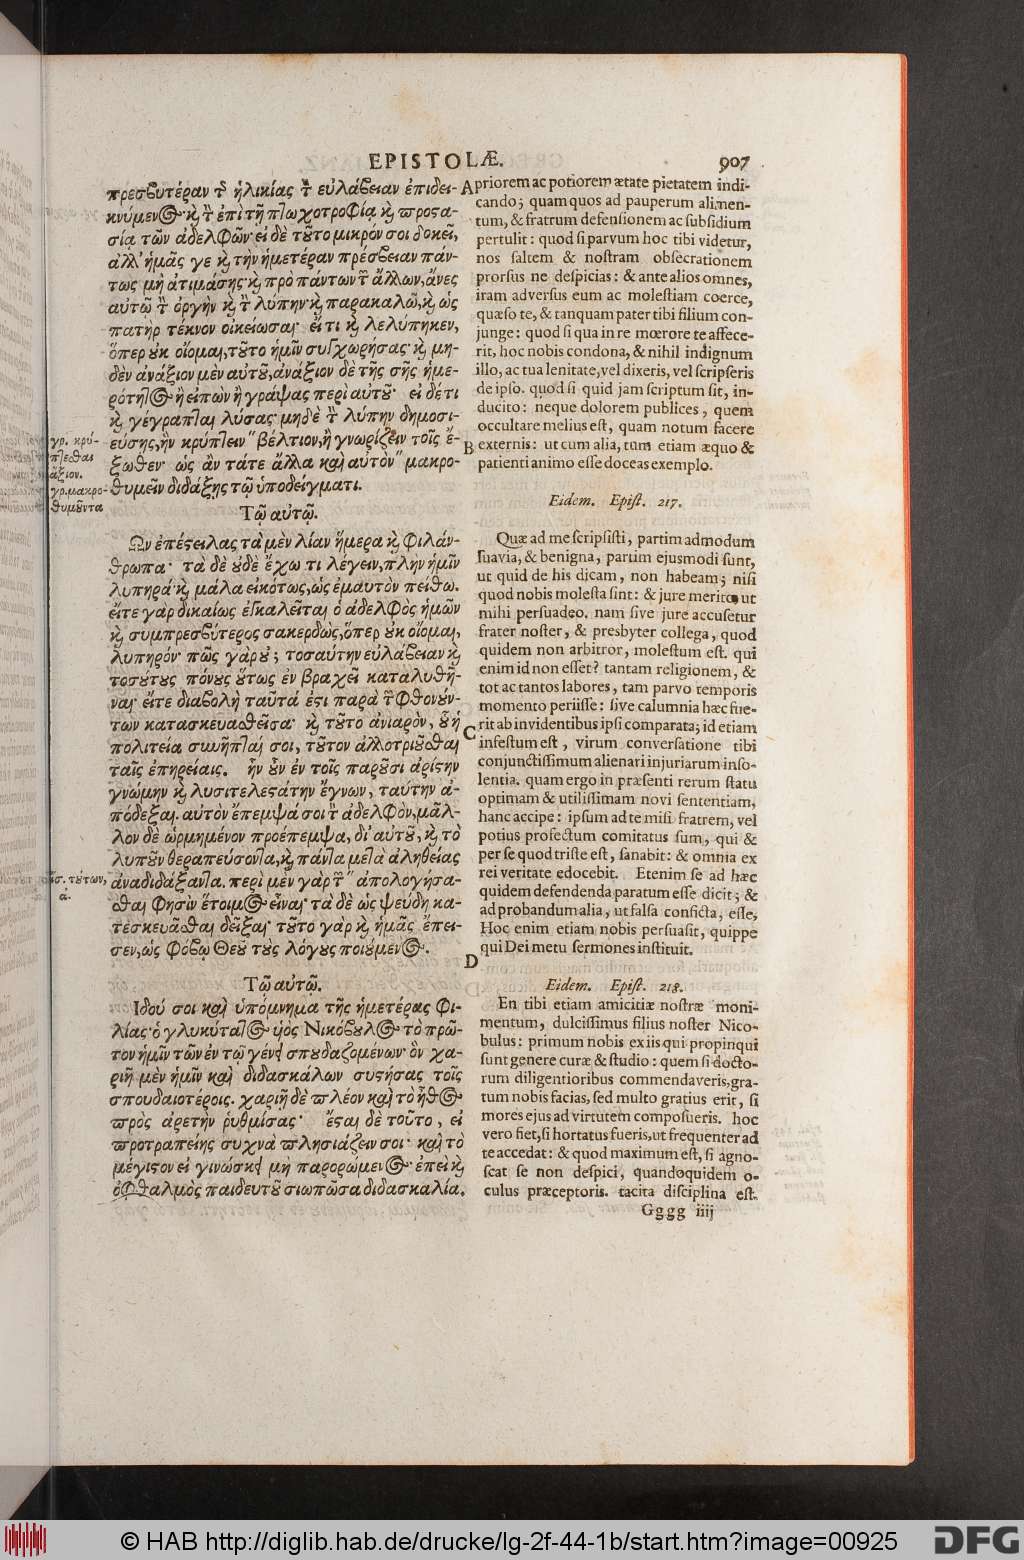 EPISTOLÆ.
907
πρεσβυτέραν τ͂ ἡλικίας τ̀ εὐλάβειαν ἐπιδει-
κνύμενος· κ̀ τ̀ ἐπὶ τῇ πτωχοτροφίᾳ κ̀ προστα-
σίᾳ τῶν ἀδελφῶν· εἰ δὲ τοῦτο μικρόν σοι δοκεῖ,
ἀλλ' ἡμᾶς γε κ̀ τὴν ἡμετέραν πρέσβειαν πάν-
τως μὴ ἀτιμάσῃς· κ̀ πρὸ πάντων τ͂ ἄλλων, ἄνες
αὐτῷ τ̀ ὀργὴν κ̀ τ̀ λύπην· κ̀ παρακαλῶ, κ̀ ὡς
πατὴρ τέκνον οἰκείωσαι· εἴ τι κ̀ λελύπηκεν,
ὅπερ οὐκ οἴομαι, τοῦτο ἡμῖν συγχωρήσας· κ̀ μη-
δὲν ἀνάξιον μὲν αὐτοῦ, ἀνάξιον δὲ τῆς σῆς ἡμε-
ρότητος ἢ εἰπὼν ἢ γράψας περὶ αὐτοῦ· εἰ δέ τι
κ̀ γέγραπται, λύσας· μηδὲ τ̀ λύπην δημοσι-
εύσῃς, ἣν κρύπτειν" βέλτιον, ἢ γνωρίζειν τοῖς ἔ-
ξωθεν· ὡς ἂν τά τε ἄλλα καὶ αὐτὸν" μακρο-
θυμεῖν διδάξῃς τῷ ὑποδείγματι.
γρ. κρύ-
πτεσθαι
ἄξιον.
γρ. μακρο-
θυμοῦντα
Τῷ αὐτῷ.
Ὧν ἐπέστειλας τὰ μὲν λίαν ἥμερα κ̀ φιλάν-
θρωπα· τὰ δὲ οὐδὲ ἔχω τι λέγειν, πλὴν ἡμῖν
λυπηρά· κ̀ μάλα εἰκότως, ὡς ἐμαυτὸν πείθω.
εἴτε γὰρ δικαίως ἐγκαλεῖται ὁ ἀδελφὸς ἡμῶν
κ̀ συμπρεσβύτερος σακερδὼς, ὅπερ οὐκ οἴομαι,
λυπηρόν· πῶς γὰρ οὔ; τοσαύτην εὐλάβειαν κ̀
τοσούτους πόνους οὕτως ἐν βραχεῖ καταλυθῆ-
ναι· εἴτε διαβολὴ ταῦτά ἐστι παρὰ τ͂ φθονούν-
των κατασκευασθεῖσα· κ̀ τοῦτο ἀνιαρὸν, οὗ ἡ
πολιτεία συνῆπταί σοι, τοῦτον ἀλλοτριοῦσθαι
ταῖς ἐπηρείαις. ἣν οὖν ἐν τοῖς παροῦσι ἀρίστην
γνώμην κ̀ λυσιτελεστάτην ἔγνων, ταύτην ἀ-
πόδεξαι. αὐτὸν ἔπεμψά σοι τ̀ ἀδελφὸν, μᾶλ-
λον δὲ ὡρμημένον προέπεμψα, δι' αὐτοῦ, κ̀ τὸ
λυποῦν θεραπεύσοντα, κ̀ πάντα μετὰ ἀληθείας
ἀναδιδάξαντα. περὶ μὲν γὰρ τ͂" ἀπολογήσα-
σθαι φησὶν ἕτοιμος εἶναι· τὰ δὲ ὡς ψευδῆ κα-
τεσκευᾶσθαι δεῖξαι· τοῦτο γὰρ κ̀ ἡμᾶς ἔπει-
σεν, ὡς φόβῳ Θεοῦ τοὺς λόγους ποιούμενος.
ἴσ. τούτων,
ἁ.
Τῷ αὐτῷ.
Ἰδού σοι καὶ ὑπόμνημα τῆς ἡμετέρας φι-
λίας· ὁ γλυκύτατος υἱὸς Νικόβουλος· τὸ πρῶ-
τον ἡμῖν τῶν ἐν τῷ γένει σπουδαζομένων· ὃν χα-
ριῇ μὲν ἡμῖν καὶ διδασκάλων συστήσας τοῖς
σπουδαιοτέροις. χαριῇ δὲ πλέον καὶ τὸ ἦθος
πρὸς ἀρετὴν ῥυθμίσας· ἔσται δὲ τοῦτο, εἰ
προτραπείης συχνὰ πλησιάζειν σοι· καὶ τὸ
μέγιστον εἰ γινώσκει μὴ παρορώμενος· ἐπεὶ κ̀
ὀφθαλμὸς παιδευτοῦ σιωπῶσα διδασκαλία.
A
B
C
D
priorem ac potiorem ætate pietatem indi-
cando; quam quos ad pauperum alimen-
tum, & fratrum defensionem ac subsidium
pertulit: quod si parvum hoc tibi videtur,
nos saltem & nostram obsecrationem
prorsus ne despicias: & ante alios omnes,
iram adversus eum ac molestiam coerce,
quæso te, & tanquam pater tibi filium con-
junge: quod si qua in re mœrore te affece-
rit, hoc nobis condona, & nihil indignum
illo, ac tua lenitate, vel dixeris, vel scripseris
de ipso. quod si quid jam scriptum sit, in-
ducito: neque dolorem publices, quem
occultare melius est, quam notum facere
externis: ut cum alia, tum etiam æquo &
patienti animo esse doceas exemplo.
Eidem. Epist. 217.
Quæ ad me scripsisti, partim admodum
suavia, & benigna, partim ejusmodi sunt,
ut quid de his dicam, non habeam; nisi
quod nobis molesta sint: & jure merito, ut
mihi persuadeo. nam sive jure accusetur
frater noster, & presbyter collega, quod
quidem non arbitror, molestum est. qui
enim id non esset? tantam religionem, &
tot ac tantos labores, tam parvo temporis
momento periisse: sive calumnia hæc fue-
rit ab invidentibus ipsi comparata; id etiam
infestum est, virum conversatione tibi
conjunctissimum alienari injuriarum inso-
lentia. quam ergo in præsenti rerum statu
optimam & utilissimam novi sententiam,
hanc accipe: ipsum ad te misi fratrem, vel
potius profectum comitatus sum, qui &
per se quod triste est, sanabit: & omnia ex
rei veritate edocebit. Etenim se ad hæc
quidem defendenda paratum esse dicit; &
ad probandum alia, ut falsa conficta, esse,
Hoc enim etiam nobis persuasit, quippe
qui Dei metu sermones instituit.
Eidem. Epist. 218.
En tibi etiam amicitiæ nostræ moni-
mentum, dulcissimus filius noster Nico-
bulus: primum nobis ex iis qui propinqui
sunt genere curæ & studio: quem si docto-
rum diligentioribus commendaveris, gra-
tum nobis facias, sed multo gratius erit, si
mores ejus ad virtutem composueris. hoc
vero fiet, si hortatus fueris, ut frequenter ad
te accedat: & quod maximum est, si agno-
scat se non despici, quandoquidem o-
culus præceptoris. tacita disciplina est.
Gggg iiij
© HAB http://diglib.hab.de/drucke/lg-2f-44-1b/start.htm?image=00925
DFG